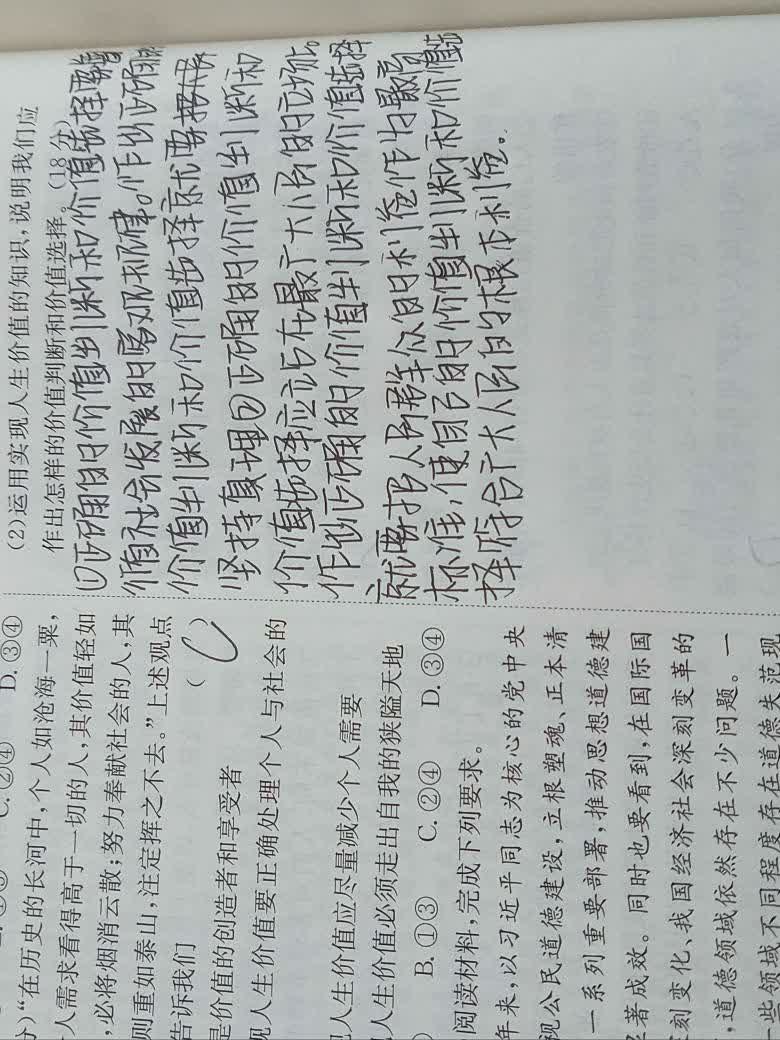 D. ③④
C. ②④
)“在历史的长河中,个人如沧海一粟,
人需求看得高于一切的人,其价值轻如
,必将烟消云散;努力奉献社会的人,其
则重如泰山,注定挥之不去。”上述观点
告诉我们
( C )
是价值的创造者和享受者
现人生价值要正确处理个人与社会的
人生价值应尽量减少个人需要
人生价值必须走出自我的狭隘天地
B. ①③ C. ②④ D. ③④
阅读材料,完成下列要求。
年来,以习近平同志为核心的党中央
视公民道德建设,立根塑魂、正本清
一系列重要部署,推动思想道德建
著成效。同时也要看到,在国际国
刻变化、我国经济社会深刻变革的
,道德领域依然存在不少问题。一
些领域不同程度存在道德失范现
(2)运用实现人生价值的知识,说明我们应
作出怎样的价值判断和价值选择。(18分)
①正确的价值判断和价值选择要遵
循社会发展的客观规律。作出正确的
价值判断和价值选择就要
坚持真理②正确的价值判断和
价值选择应站在最广大人民的立场上。
作出正确的价值判断和价值选择
就要把人民群众的利益作为最高
标准,使自己的价值判断和价值选
择符合广大人民的根本利益。